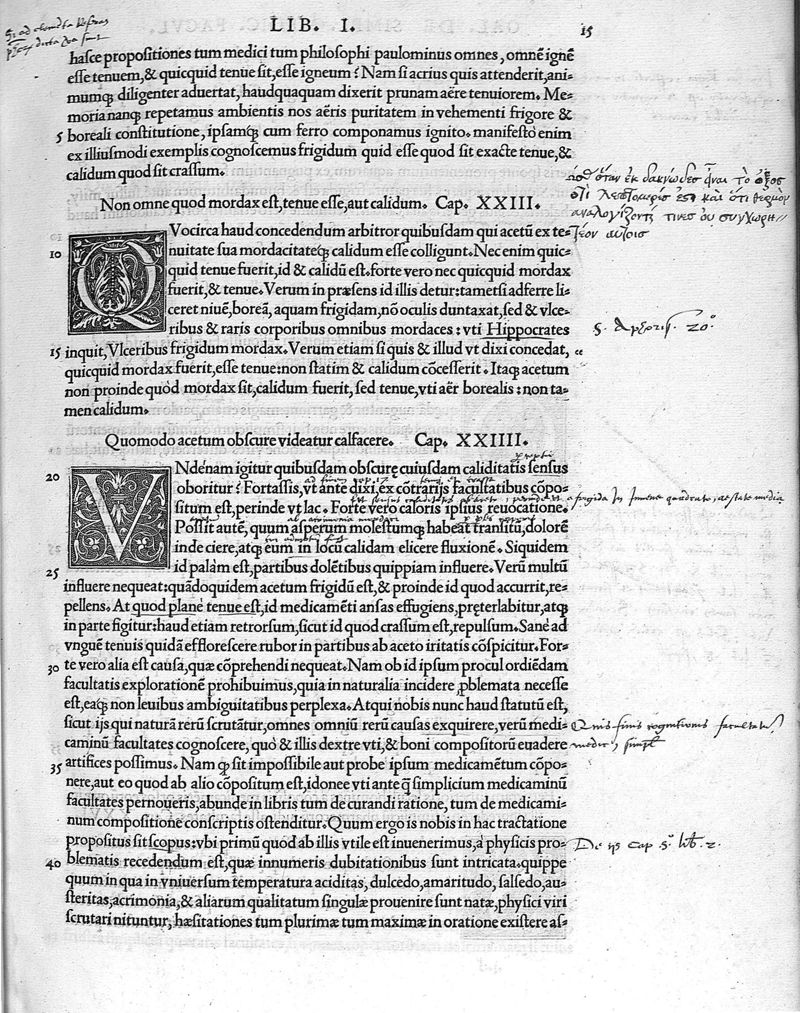 LIB. I.
15
hasce propositiones tum medici tum philosophi paulominus omnes, omnē ignē
esse tenuem,& quicquid tenue sit,esse igneum? Nam si acrius quis attenderit,ani-
mumq; diligenter aduertat, haudquaquam dixerit prunam aëre tenuiorem. Me-
moria nanq; repetamus ambientis nos aëris puritatem in vehementi frigore &
5 boreali constitutione, ipsamq; cum ferro componamus ignito. manifesto enim
ex illiusmodi exemplis cognoscemus frigidum quid esse quod sit exacte tenue,&
calidum quod sit crassum.
Non omne quod mordax est,tenue esse,aut calidum. Cap. XXIII.
QVocirca haud concedendum arbitror quibusdam qui acetū ex te-
10 nuitate sua mordacitateq; calidum esse colligunt. Nec enim quic-
quid tenue fuerit,id & calidū est. forte vero nec quicquid mordax
fuerit,& tenue. Verum in præsens id illis detur: tametsi adferre li-
ceret niuē,boreā, aquam frigidam,nō oculis duntaxat,sed & vlce-
ribus & raris corporibus omnibus mordaces: vti Hippocrates
15 inquit,Vlceribus frigidum mordax. Verum etiam si quis & illud vt dixi concedat,
quicquid mordax fuerit,esse tenue: non statim & calidum cōcesserit. Itaq; acetum
non proinde quod mordax sit,calidum fuerit, sed tenue,vti aër borealis: non ta-
men calidum.
Quomodo acetum obscure videatur calfacere. Cap. XXIIII.
20 VNde nam igitur quibusdam obscurę cuiusdam caliditatis sensus
oboritur? Fortassis,vt ante dixi,ex cōtrarijs facultatibus cōpo-
situm est,perinde vt lac. Forte vero caloris ipsius reuocatione.
Possit autē, quum asperum molestumq; habeat trāsitū, dolorē
inde ciere,atq; eum in locū calidam elicere fluxionē. Siquidem
25 id palàm est,partibus dolētibus quippiam influere. Verū multū
influere nequeat: quādoquidem acetum frigidū est,& proinde id quod accurrit,re-
pellens. At quod planè tenue est,id medicamēti ansas effugiens,pręterlabitur,atq;
in parte figitur: haud etiam retrorsum,sicut id quod crassum est,repulsum. Sanè ad
vnguē tenuis quidā efflorescere rubor in partibus ab aceto irritatis cōspicitur. For-
30 te vero alia est causa,quæ cōprehendi nequeat. Nam ob id ipsum procul ordiēdam
facultatis explorationē prohibuimus,quia in naturalia incidere ꝓblemata necesse
est,eaq; non leuibus ambiguitatibus perplexa. Atqui nobis nunc haud statutū est,
sicut ijs qui naturā rerū scrutātur,omnes omniū rerū causas exquirere,verū medi-
caminū facultates cognoscere, quò & illis dextre vti,& boni compositorū euadere
35 artifices possimus. Nam q̄ sit impossibile aut probe ipsum medicamētum cōpo-
nere,aut eo quod ab alio cōpositum est,idonee vti ante q̄ simplicium medicaminū
facultates pernoueris,abunde in libris tum de curandi ratione, tum de medicami-
num compositione conscriptis ostenditur. Quum ergo is nobis in hac tractatione
propositus sit scopus: vbi primū quod ab illis vtile est inuenerimus,à physicis pro-
40 blematis recedendum est,quæ innumeris dubitationibus sunt intricata. quippe
quum in qua in vniuersum temperatura aciditas, dulcedo,amaritudo, salsedo,au-
steritas,acrimonia,& aliarum qualitatum singulæ prouenire sunt natæ,physici viri
scrutari nituntur, hæsitationes tum plurimæ tum maximæ in oratione existere as-
5. Aphoris. 20.
Quis finis cognitionis facultatū
medic, simpl
De ijs cap 5. lib. 2.